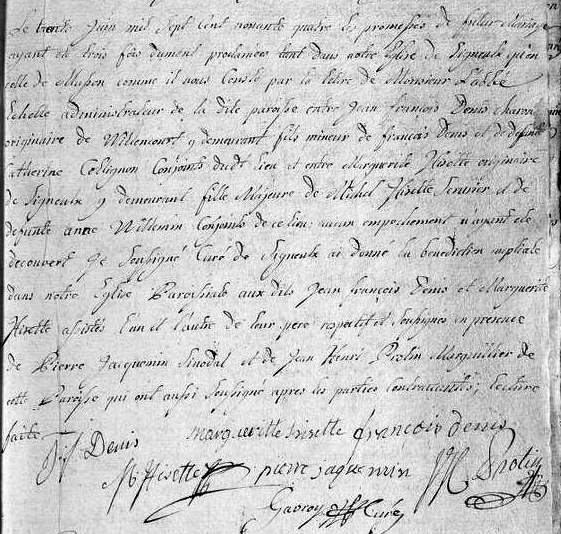 Le trente Juin mil sept cent nonante quatre les promesses de futur Mariage
ayant été trois fois dument proclamées tant dans notre Eglise de Signeulx qu'en
celle de Musson comme il nous Conste par la lettre de Monsieur L'abbé
Echolle administrateur de la dite paroisse entre Jean françois Denis charon
originaire de Willencourt y demeurant fils mineur de françois Denis et de defunte
Catherine Collignon Conjoints dudt lieu et entre Marguerite Hisette originaire
de Signeulx y demeurant fille Majeure de Michel Hisette et de
defunte anne Willemin Conjoints de ce lieu; aucun empechement n'ayant été
decouvert Je Soussigné Curé de Signeulx ai donné la benediction nuptiale
dans notre Eglise Paroissiale aux dits Jean françois Denis et Marguerite
Hisette assistés l'un et l'autre de leur pere respectif et Soussignes en presence
de Pierre Jacquemin Sinodal et de Jean Henri Protin Marguillier de
cette Paroisse qui ont aussi Soussigné apres les parties Contractantes; lecture
faite
Jif Denis margueritte hisette francois denis
M Hisette pierre jaquemin Protin
Gavroy Curé